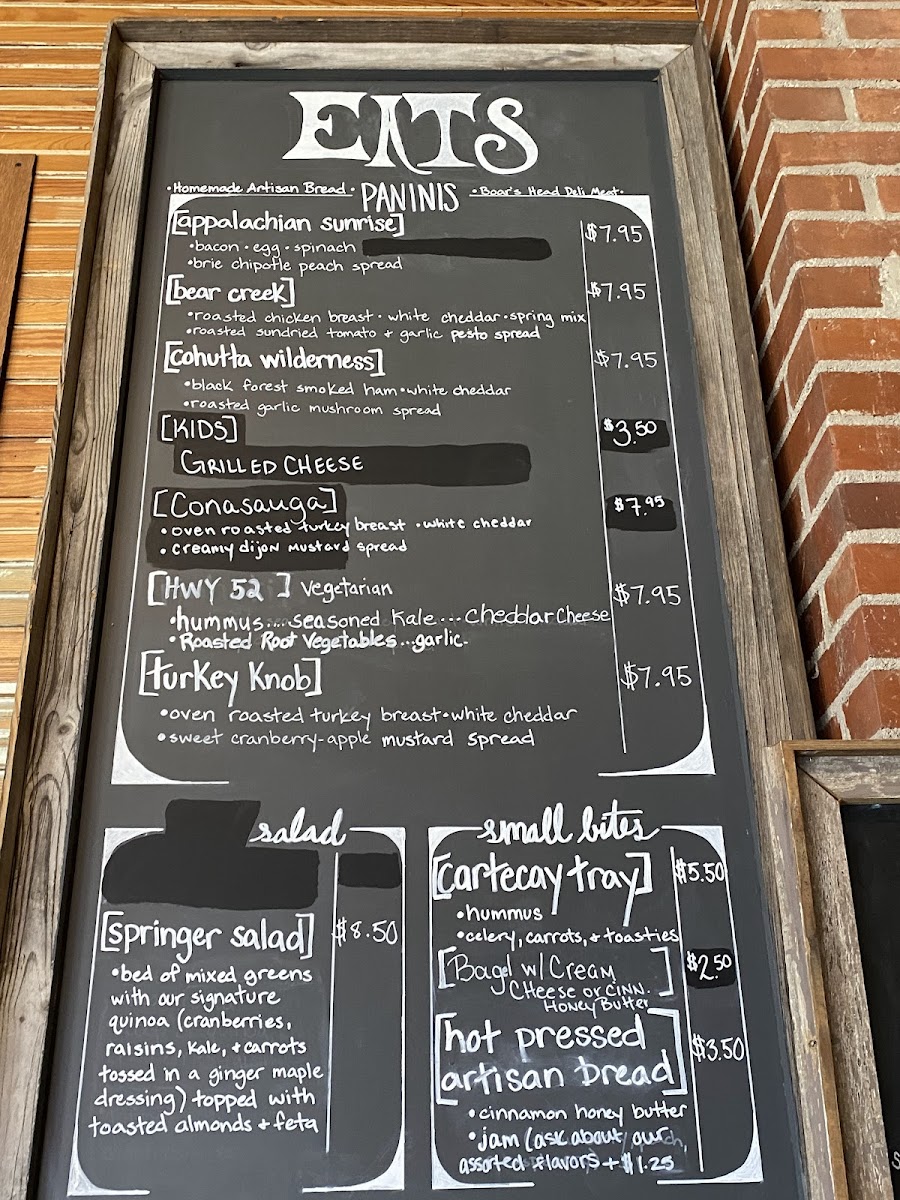 EATS
•Homemade Artisan Bread• PANINIS •Boar's Head Deli Meat•
[appalachian sunrise] $7.95
•bacon•egg•spinach
•brie chipotle peach spread
[bear creek] $7.95
•roasted chicken breast•white cheddar•spring mix
•roasted sundried tomato + garlic pesto spread
[cohutta wilderness] $7.95
•black forest smoked ham•white cheddar
•roasted garlic mushroom spread
[KIDS] $3.50
GRILLED CHEESE
[Conasauga] $7.95
•oven roasted turkey breast •white cheddar
•creamy dijon mustard spread
[HWY 52] Vegetarian $7.95
•hummus...seasoned Kale...cheddar Cheese
•Roasted Root Vegetables...garlic
[turkey Knob] $7.95
•oven roasted turkey breast•white cheddar
•sweet cranberry-apple mustard spread
salad
[springer salad] $8.50
•bed of mixed greens
with our signature
quinoa (cranberries,
raisins, kale, + carrots
tossed in a ginger maple
dressing) topped with
toasted almonds + feta
small bites
[cartecay tray] $5.50
•hummus
•celery, carrots, + toasties
[Bagel w/ Cream $2.50
CHeese or CINN.
Honey Butter]
[hot pressed $3.50
artisan bread]
•cinnamon honey butter
•jam (ask about our
assorted flavors + $1.25